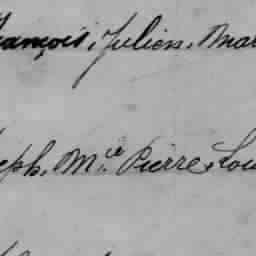 François, Julien, Mar
eph, M.ie Pierre, Lou